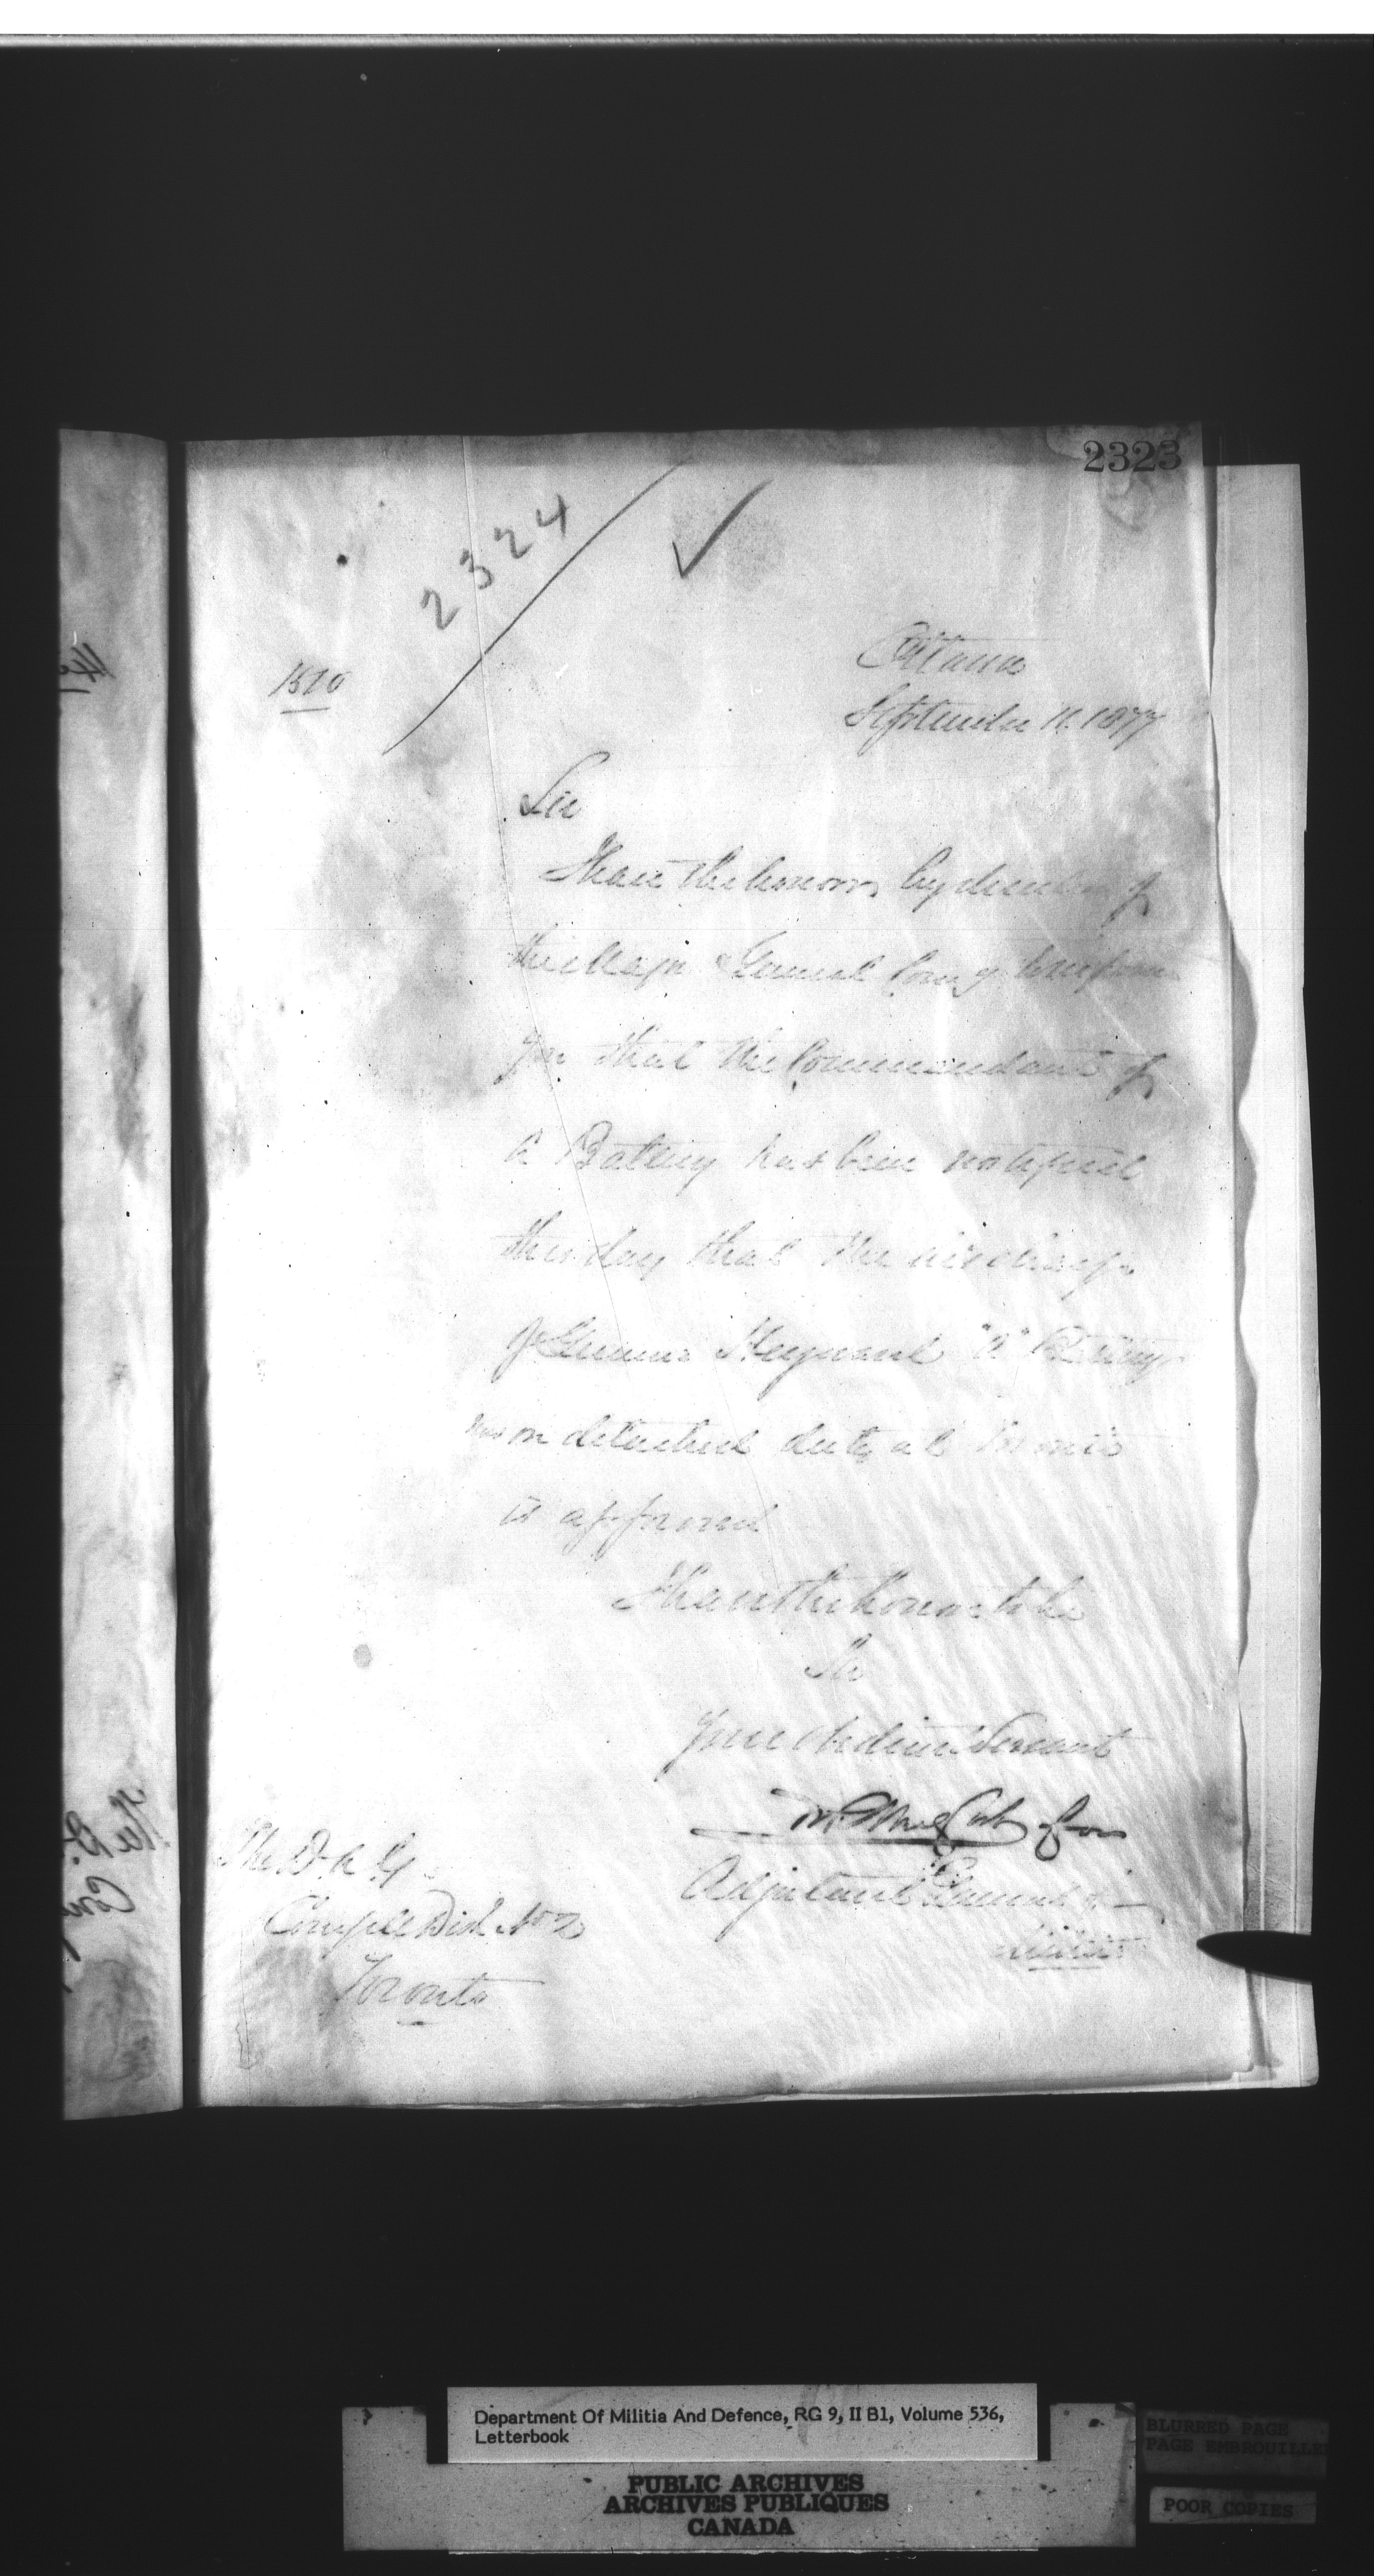 2323
2324
1510
Ottawa
September 11. 1877
Sir
I have the honor, by direction of
the Major General Comg to inform
you that the Commandant of
A Battery has been notified
this day that the discharge
of Gunner "A" Battery
now on detached duty at Toronto
is approved
I have the honor to be
Sir
Your obedient Servant
for
Adjutant General of
Militia
The D. A. G.
Dist No 2
Toronto
Department Of Militia And Defence, RG 9, II B1, Volume 536,
Letterbook
PUBLIC ARCHIVES
ARCHIVES PUBLIQUES
CANADA
BLURRED PAGE
PAGE EMBROUILLE
POOR COPIES